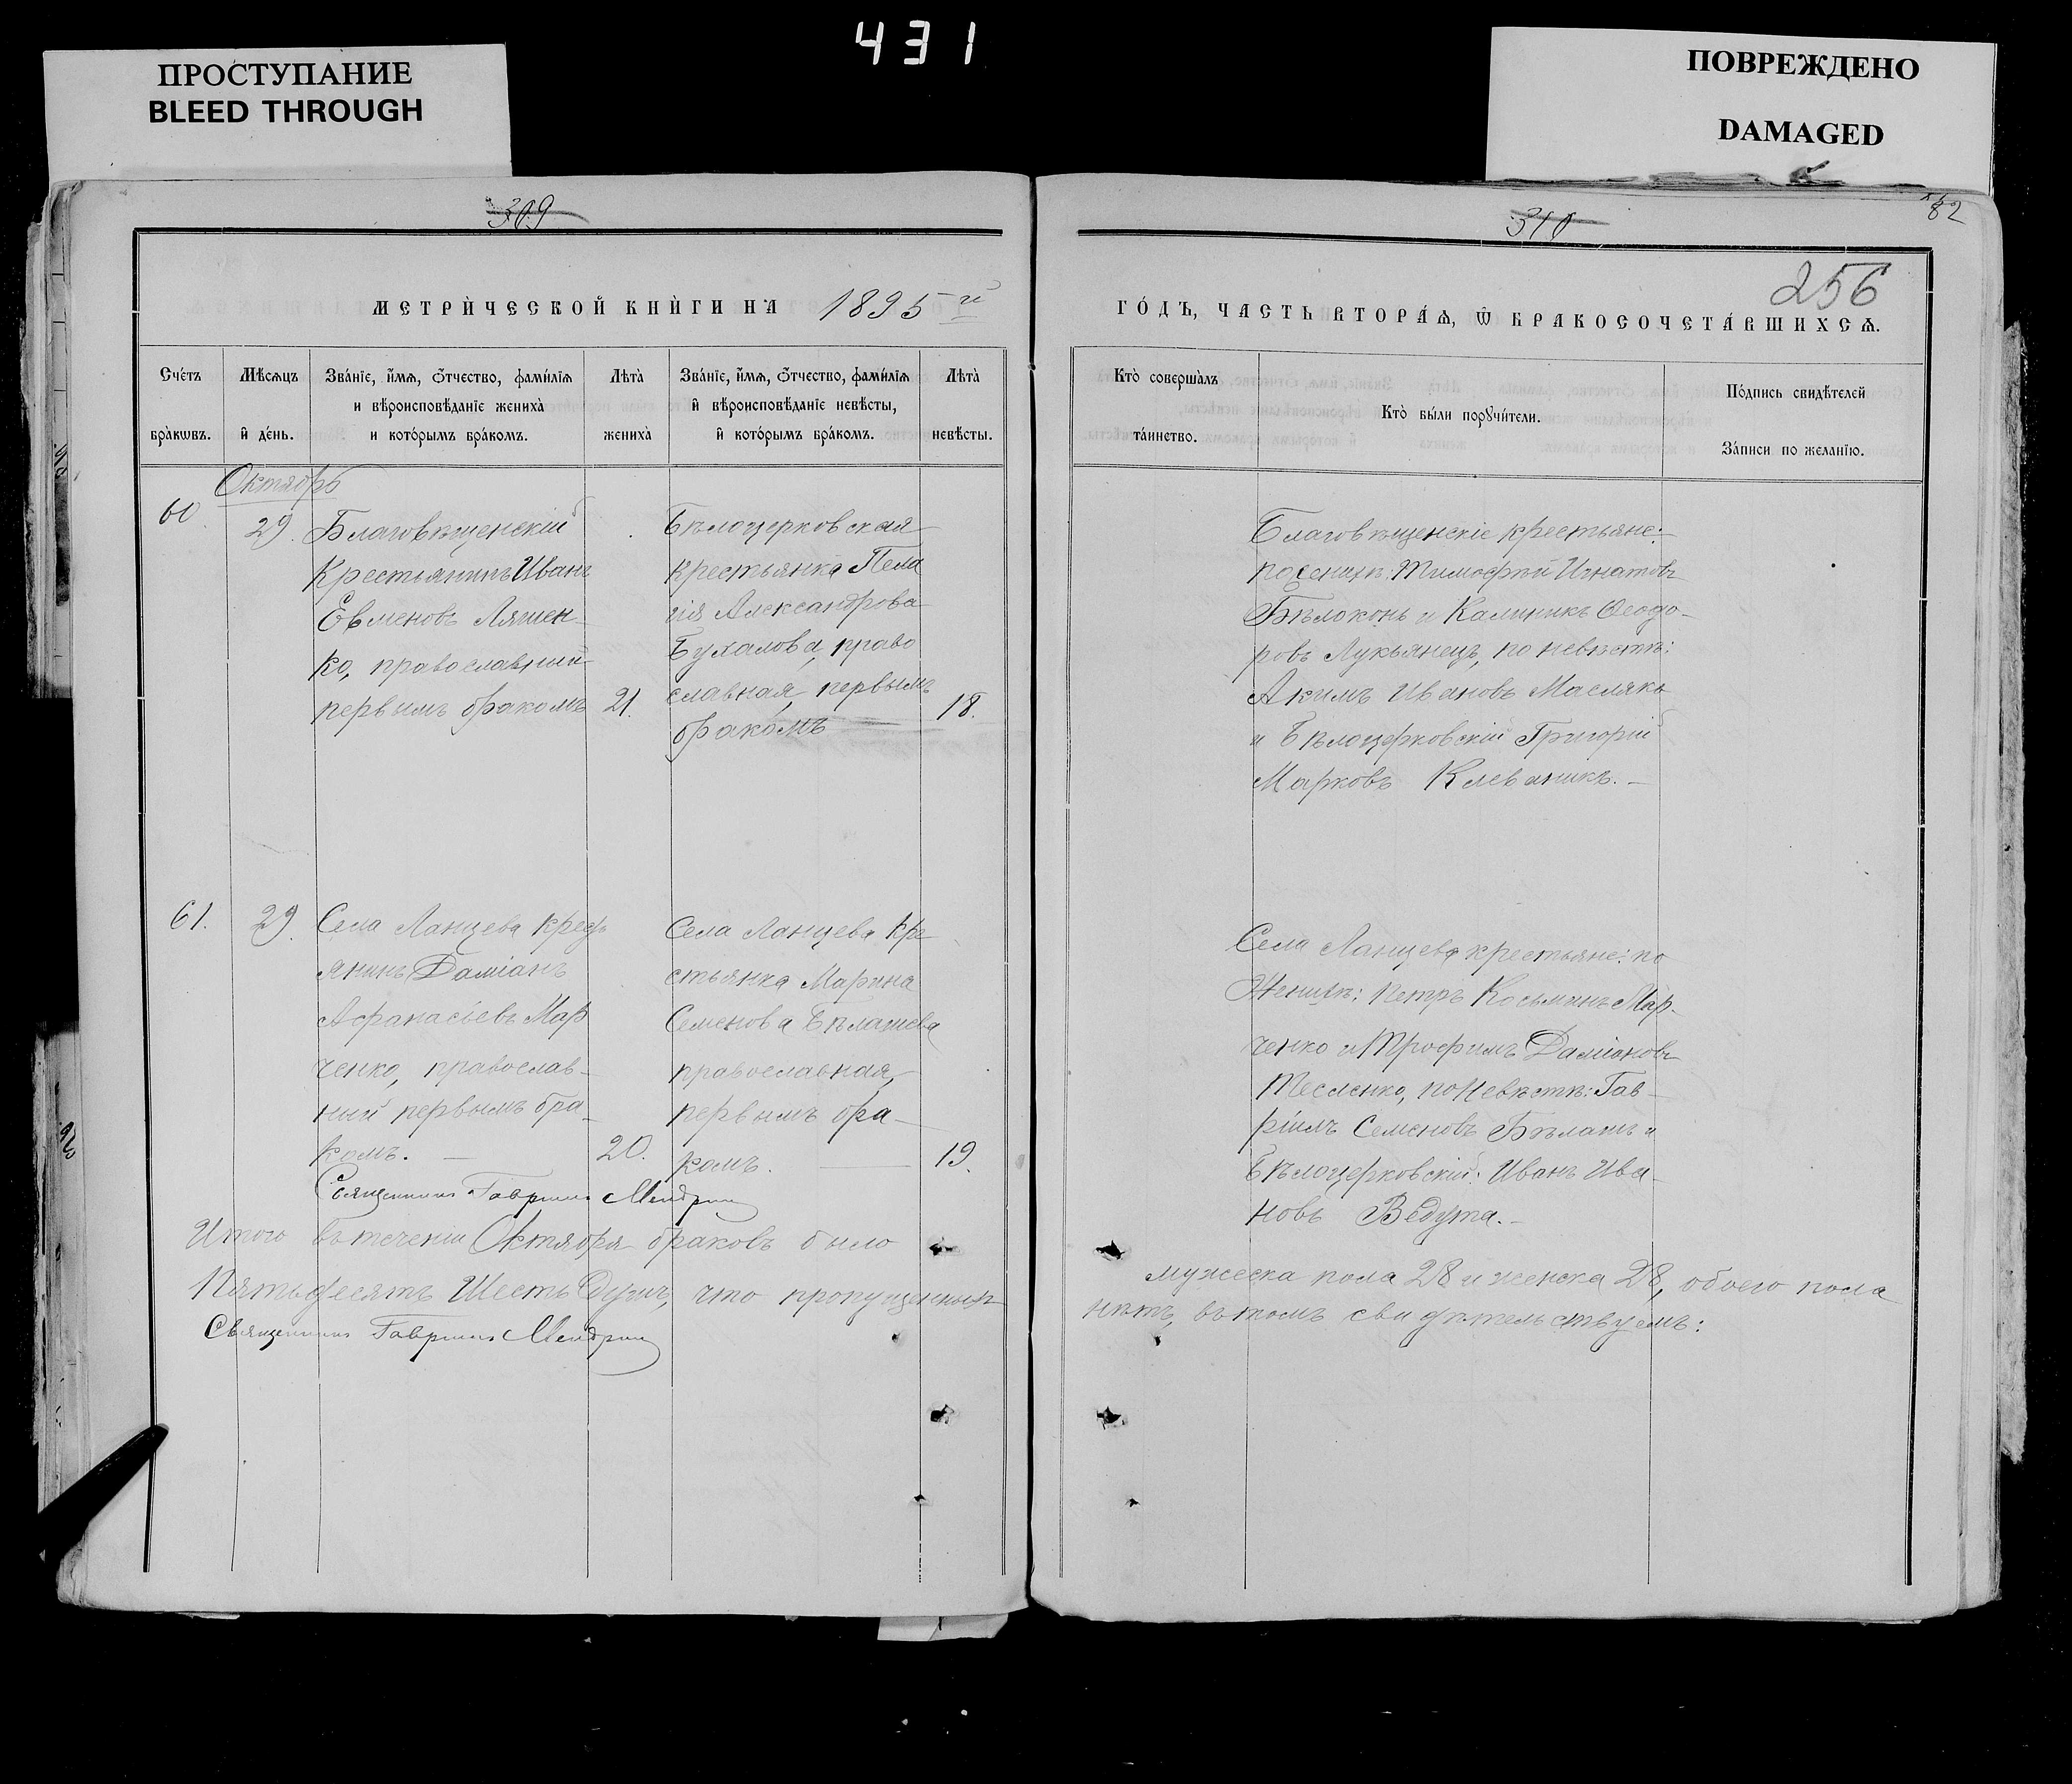 431
ПРОСТУПАНИЕ
BLEED THROUGH
ПОВРЕЖДЕНО
DAMAGED
309
МЕТРИ́ЧЕСКОЙ КНИ́ГИ НА 1895 й
Сче́тъ бра́кѡвъ.
Мѣ́сѧцъ и҆ де́нь.
Зва́нїе, и҆́мѧ, ѻ҆́тчество, фами́лїѧ
и вѣроисповѣ́данїе жениха̀
и кото́рымъ бра́комъ.
Лѣта̀ жениха̀
Зва́нїе, и҆́мѧ, ѻ҆́тчество, фами́лїѧ
и҆ вѣроисповѣ́данїе невѣ́сты,
и҆ кото́рымъ бра́комъ.
Лѣта̀ невѣ́сты.
Октябрь
60. 29.
Благовѣщенскій
крестьянинъ Иванъ
Евменовъ Ляшен-
ко, православный
первымъ бракомъ 21.
Бѣлоцерковская
крестьянка Пела
гія Александрова
Бухалова, право
славная, первымъ
бракомъ 18.
61. 29.
Села Ланцева крес
янинъ Даміанъ
Афанасіевъ Мар
ченко, православ-
ный первымъ бра-
комъ. — 20.
Села Ланцева кре
стьянка Марина
Семенова Бѣлашева
православная,
первымъ бра-
комъ. — 19.
Священникъ Гавріилъ Мендрин
Итого въ теченіи Октября браковъ было
Пятьдесятъ Шесть Душъ, что пропущенныхъ
Священникъ Гавріилъ Мендрин
310
82
256
ГО́ДЪ, ЧАСТЬ ВТОРА́Ѧ, Ѡ҆ БРАКОСОЧЕТА́ВШИХСѦ.
Кто̀ соверша́лъ
та́инство.
Кто̀ бы́ли порꙋчи́тели.
По́дпись свидѣ́телей
За́писи по жела́нїю.
Благовѣщенскіе крестьяне:
по женихѣ: Тимофѣй Игнатовъ
Бѣлоконь и Калиникъ Ѳеодо-
ровъ Лукьянецъ, по невѣстѣ:
Акимъ Ивановъ Маслякъ
и Бѣлоцерковскій Григорій
Марковъ Клеваникъ. —
Села Ланцева крестьяне: по
Женихѣ: Петръ Косьминъ Мар-
ченко и Трофимъ Даміановъ
Тесленко, по Невѣстѣ: Гав-
ріилъ Семеновъ Бѣлашъ и
Бѣлоцерковскій: Иванъ Ива-
новъ Ведута. —
мужеска пола 28 и женска 28, обоего пола
нѣтъ, въ томъ свидѣтельствуемъ: